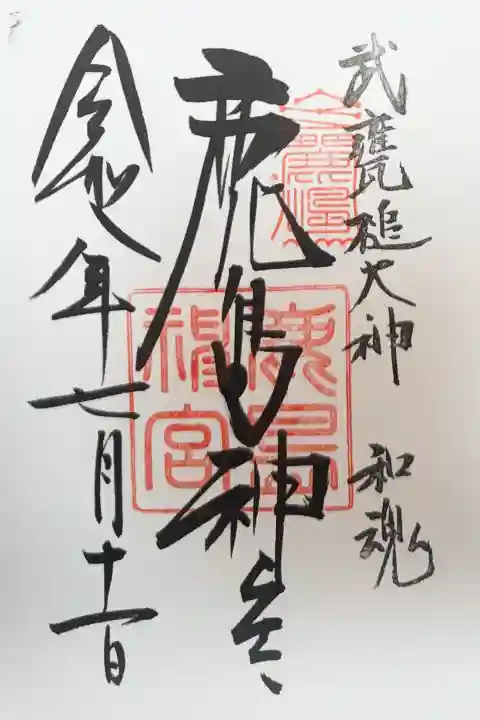 武甕槌大神 和魂
鹿島神宮
令和七年七月十一日
鹿島
神宮